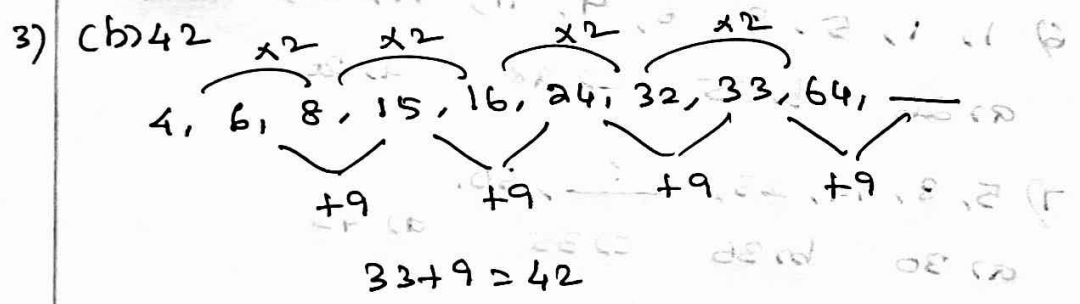 3) (b) 42
×2 ×2 ×2 ×2
4, 6, 8, 15, 16, 24, 32, 33, 64, —
+9 +9 +9 +9
33+9=42